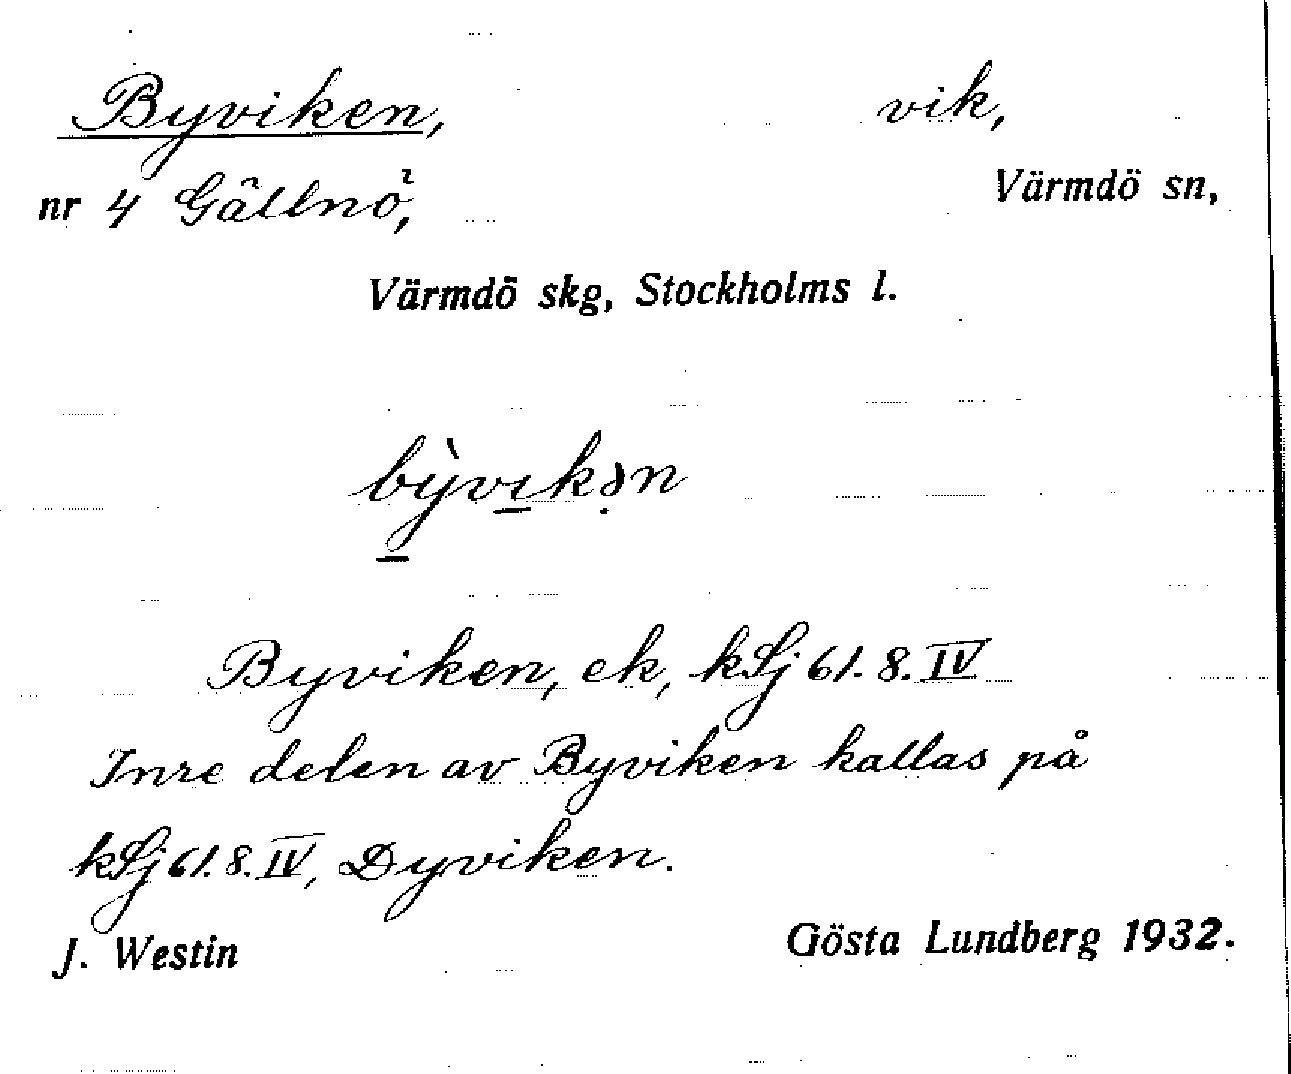 Byviken, vik,
nr 4 Gällnö, Värmdö sn,
Värmdö skg, Stockholms l.
bỳvikən
Byviken, ek, kSj 61. 8. IV
Inre delen av Byviken kallas på
kSj 61. 8. IV, Dyviken.
J. Westin Gösta Lundberg 1932.